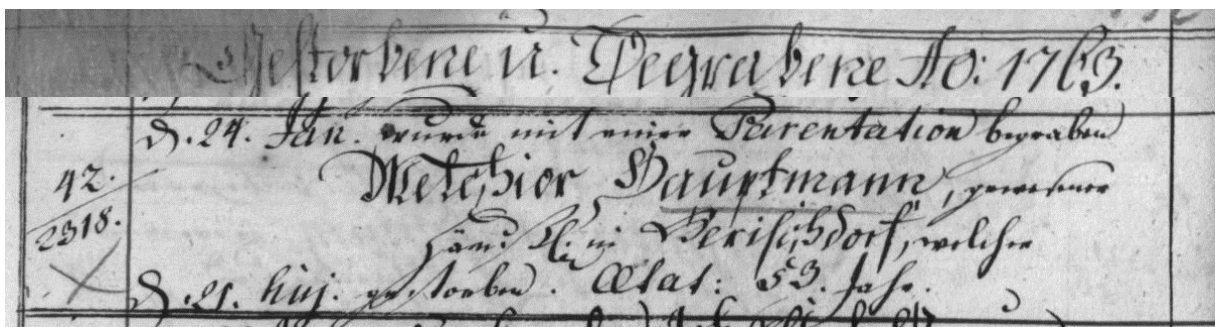 Gestorbene u. Begrabene Ao: 1763.
d. 24. Jan. wurde mit einer Parentation begraben
42.
2318.
Melchior Hauptmann, gewesener
Häusl. in Herischdorf, welcher
d. 21. huj. gestorben. Ætat: 53. Jahr.